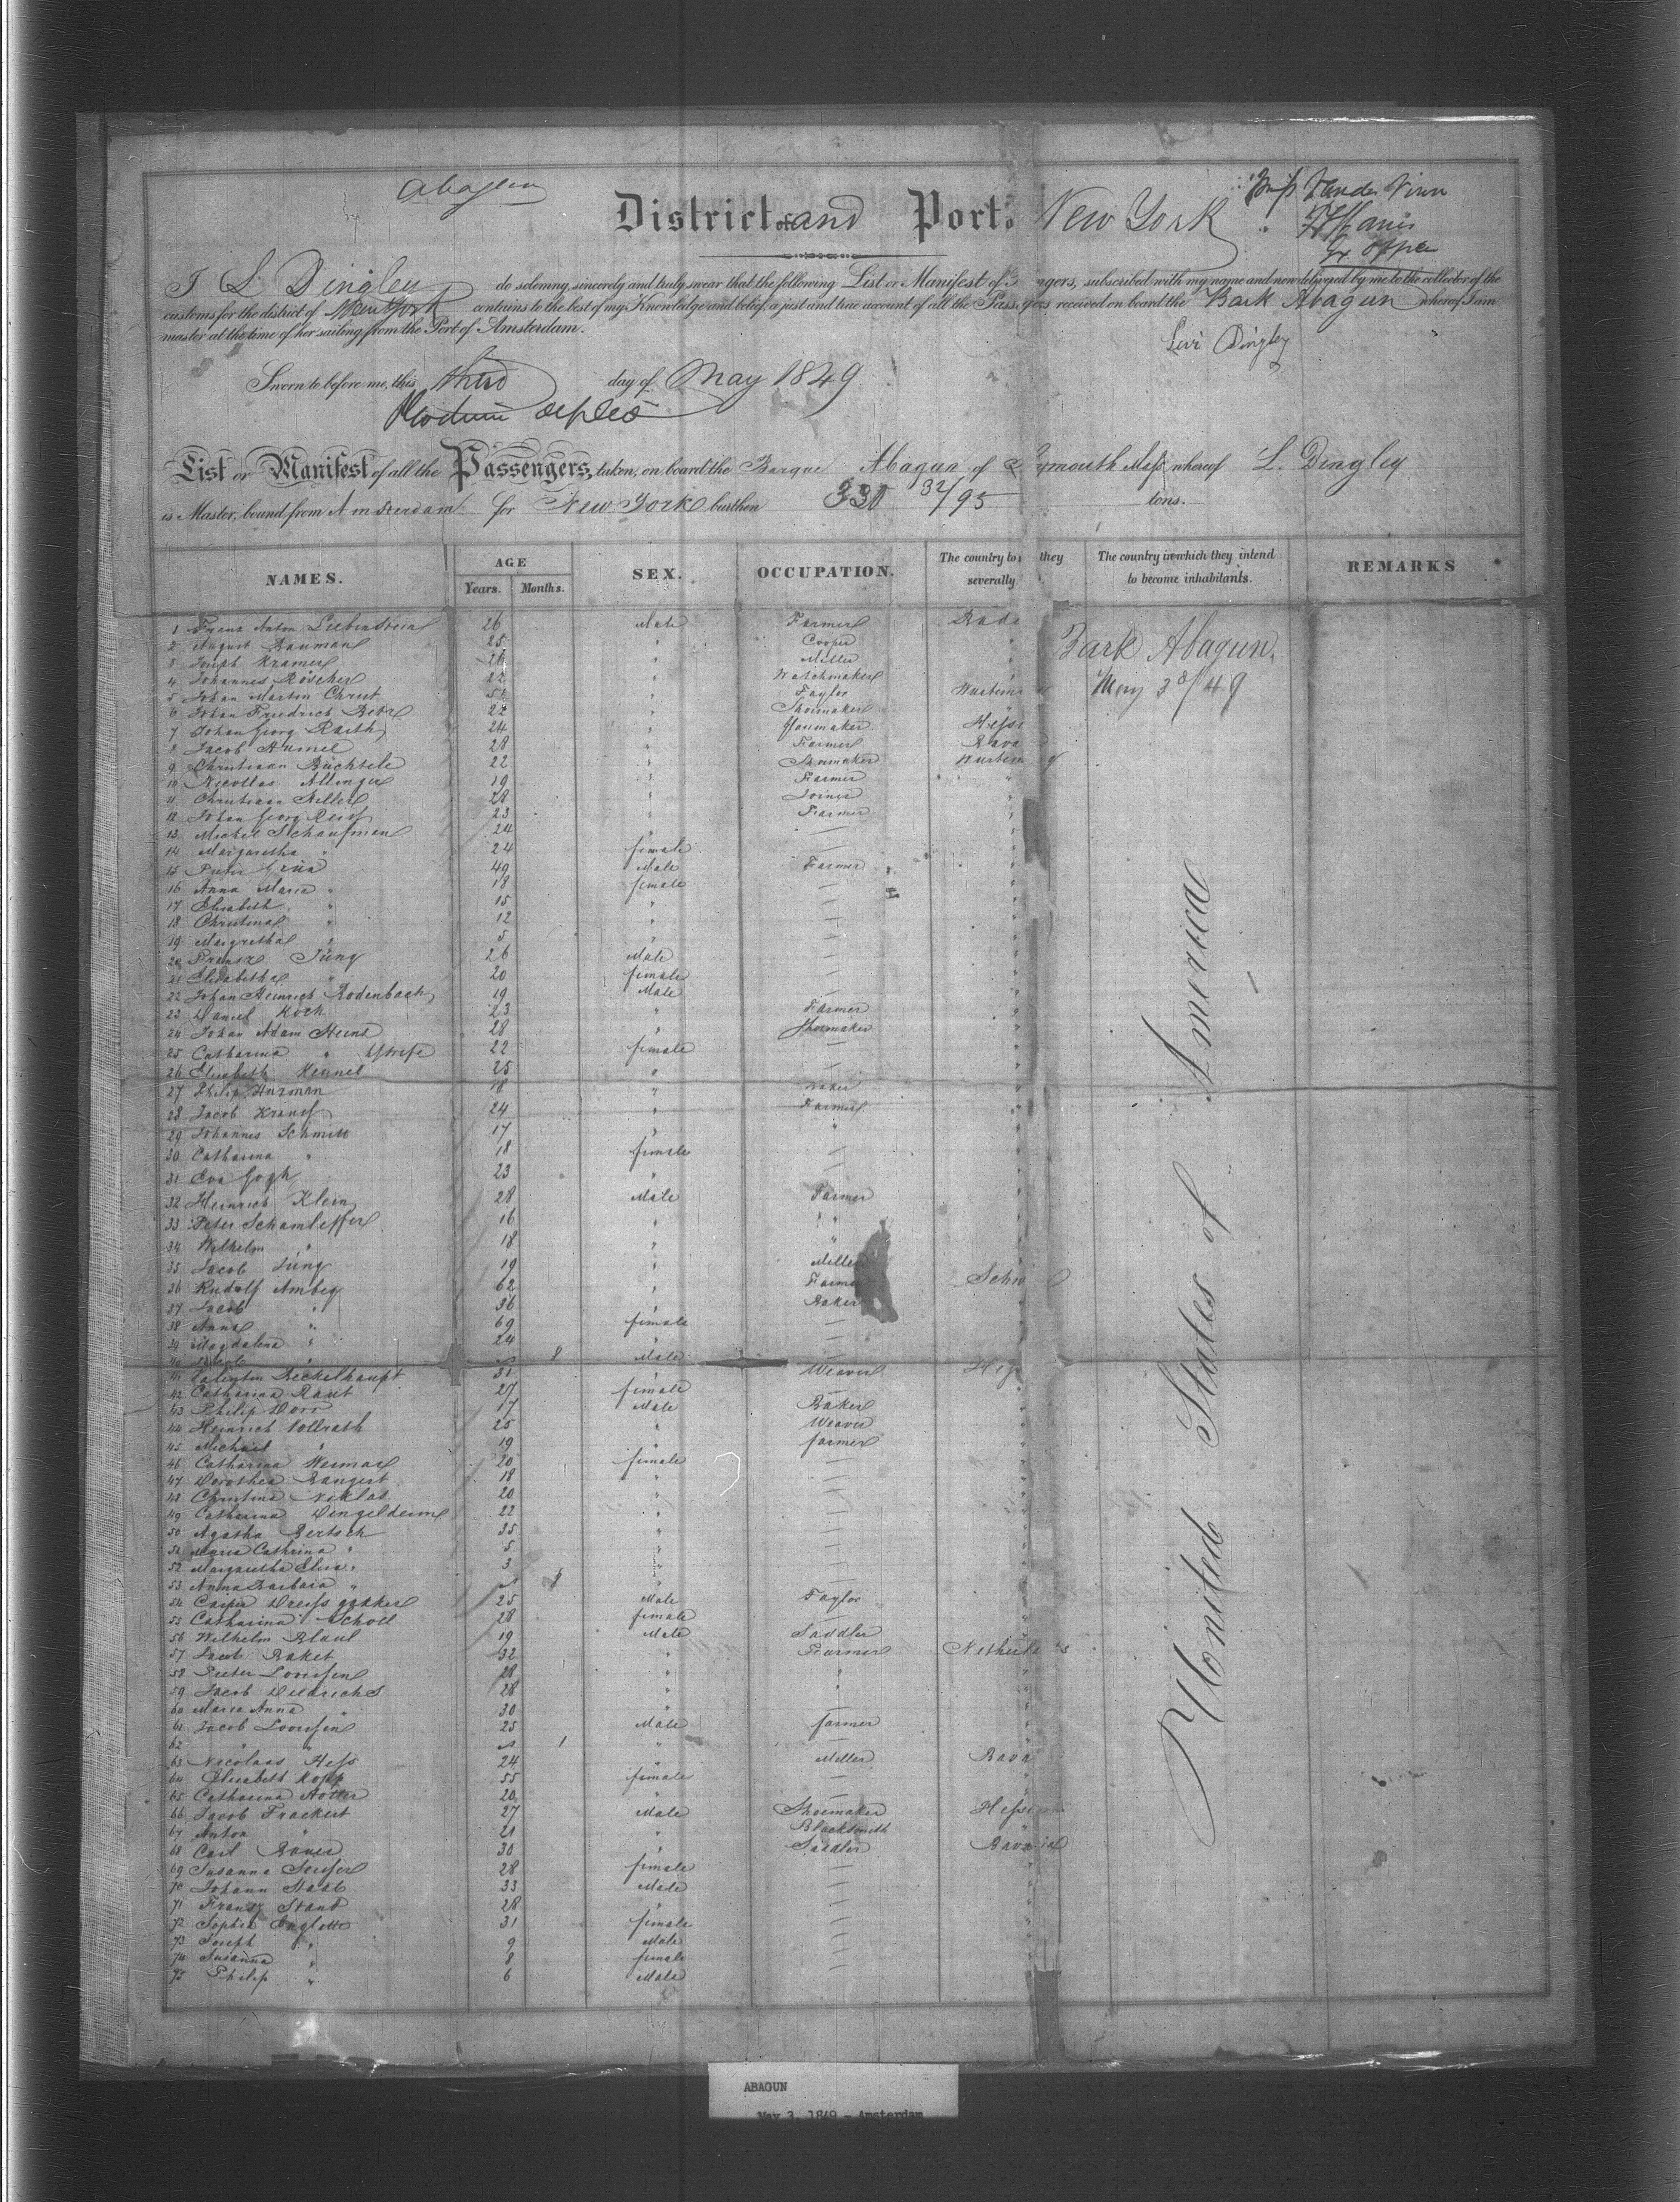 Abagun
District and Port: New York
I L Dingley do solemny, sincerely and truly swear that the following List or Manifest of gers, subscribed with my name and now delivered by me to the collector of the
customs for the district of New York contains to the best of my Knowledge and belief, a just and true account of all the Pass gers received on board the Bark Abagun whereof I am
master at the time of her sailing from the Port of Amsterdam.
Levi Dingley
Sworn to before me, this third day of May 1849
List or Manifest of all the Passengers, taken, on board the Barque Abagun of Plymouth Mass whereof L. Dingley
is Master, bound from Amsterdam for New York burthen 330 32/95 tons.
NAMES. AGE Years. Months. SEX. OCCUPATION. The country to they severally The country in which they intend to become inhabitants. REMARKS
Bark Abagun.
May 3d/49
United States of America
1 Franz Anton Liebenstein 26 Male Farmer Bade
2 August Bauman 25 " Cooper "
3 Joseph Kramer 26 " Miller "
4 Johannes Röscher 22 " Watchmaker "
5 Johan Martin Christ 51 " Taylor Wurtem
6 Johan Friedrich Betz 22 " Shoemaker "
7 Johan Georg Raith 24 " Hess
8 Jacob Humel 28 " Farmer Bava
9 Christiaan Büchsele 22 " Shoemaker Wurtem g
10 Nicollas Allinger 19 " Farmer "
11 Christiaan Killer 28 " Joiner "
12 Johan Georg Reiss 23 " Farmer "
13 Michel Schaufman 24 " — "
14 Margaretha " 24 female — "
15 Peter Grün 49 Male Farmer "
16 Anna Maria " 18 female — "
17 Elisabeth " 15 " — "
18 Christina " 12 " — "
19 Margretha " 5 " — "
20 Franz Jung 26 Male — "
21 Elisabetha " 20 female — "
22 Johan Heinrich Rodenbach 19 Male — "
23 Daniel Koch 23 " Farmer "
24 Johan Adam Heins 28 " Shoemaker "
25 Catharina " wife 22 female — "
26 Elisabeth Kennel 25 " — "
27 Philip Hurman 18 " Baker "
28 Jacob Krauss 24 " Farmer "
29 Johannes Schmitt 17 " " "
30 Catharina " 18 female — "
31 Eva 23 " — "
32 Heinrich Klein 28 Male Farmer "
33 Peter Schamleffer 16 " " "
34 Wilhelm " 18 " " "
35 Jacob Jung 19 " Miller "
36 Rudolf Amberg 62 " Farmer Schw
37 Jacob " 36 " Baker
38 Anna " 69 female —
39 Magdalena " 24 " —
40 Jacob " 8 Male —
41 Valentin Beckelhaupt 31 " Weaver
42 Catharina Raut 27 female — "
43 Philip Dorr 17 Male Baker "
44 Heinrich Vollrath 25 " Weaver "
45 Michael " 19 " farmer "
46 Catharina Weimar 20 female — "
47 Dorothea Bangert 18 " — "
48 Christina Niklas 20 " — "
49 Catharina Dingeldein 22 " — "
50 Agatha Bertsch 35 " — "
51 Maria Cathrina " 5 " — "
52 Margaretha Elisa " 3 " — "
53 Anna Barbara " 8 " — "
54 Casper 25 Male Taylor "
55 Catharina Scholl 28 female — "
56 Wilhelm Blaul 19 Male Saddler "
57 Jacob Baket 32 " Farmer Netherla s
58 Pieter Lovisen 28 " " "
59 Jacob Diedrichs 28 " " "
60 Maria Anna " 30 " — "
61 Jacob Lovisen 25 Male farmer "
62 " " 1 " — "
63 Nicolaas Hess 24 " Miller Bava
64 Elisabeth Kopp 55 female — "
65 Catharina Hotter 20 " — "
66 Jacob Frackert 27 Male Shoemaker Hesse
67 Anton " 21 " Blacksmith "
68 Carl Bauer 30 " Saddler Bavaria
69 Susanna Seufer 28 female — "
70 Johann Staab 33 Male — "
71 Franz Staub 28 " — "
72 Sophia 31 female — "
73 Joseph " 9 Male — "
74 Susanna " 8 female — "
75 Philip " 6 Male — "
ABAGUN
May 3, 1849 - Amsterdam